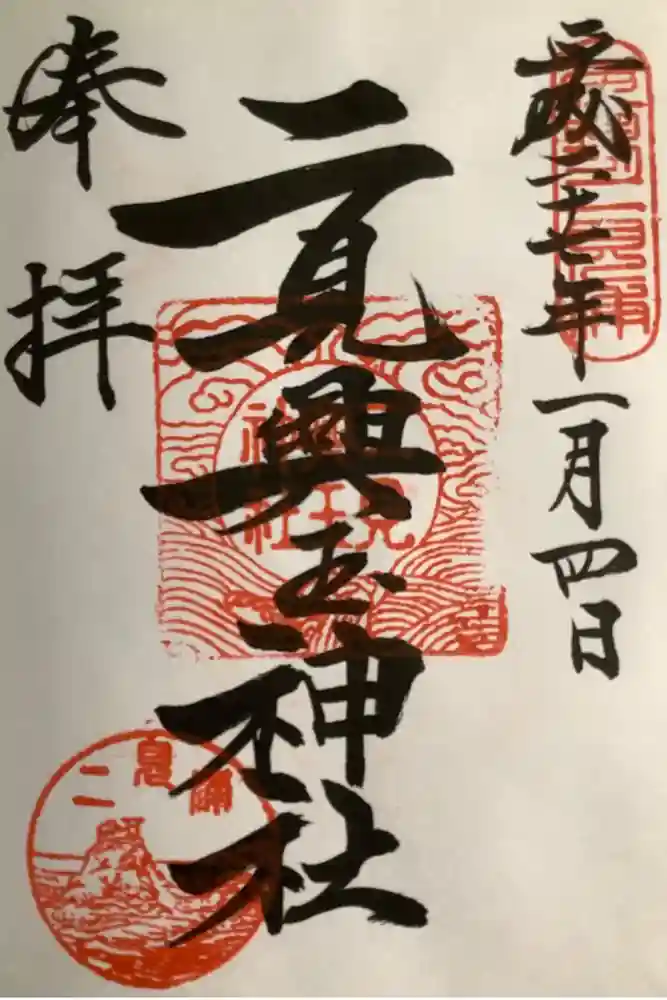 平成二十七年一月四日
二見興玉神社
奉拝
二見浦